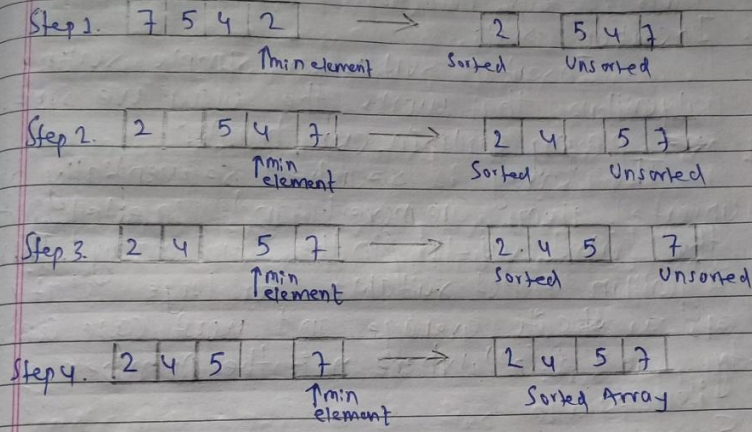 Step 1. 7 5 4 2 → 2 5 4 7
↑min element Sorted Unsorted
Step 2. 2 5 4 7 → 2 4 5 7
↑min element Sorted Unsorted
Step 3. 2 4 5 7 → 2 4 5 7
↑min element Sorted Unsorted
Step 4. 2 4 5 7 → 2 4 5 7
↑min element Sorted Array